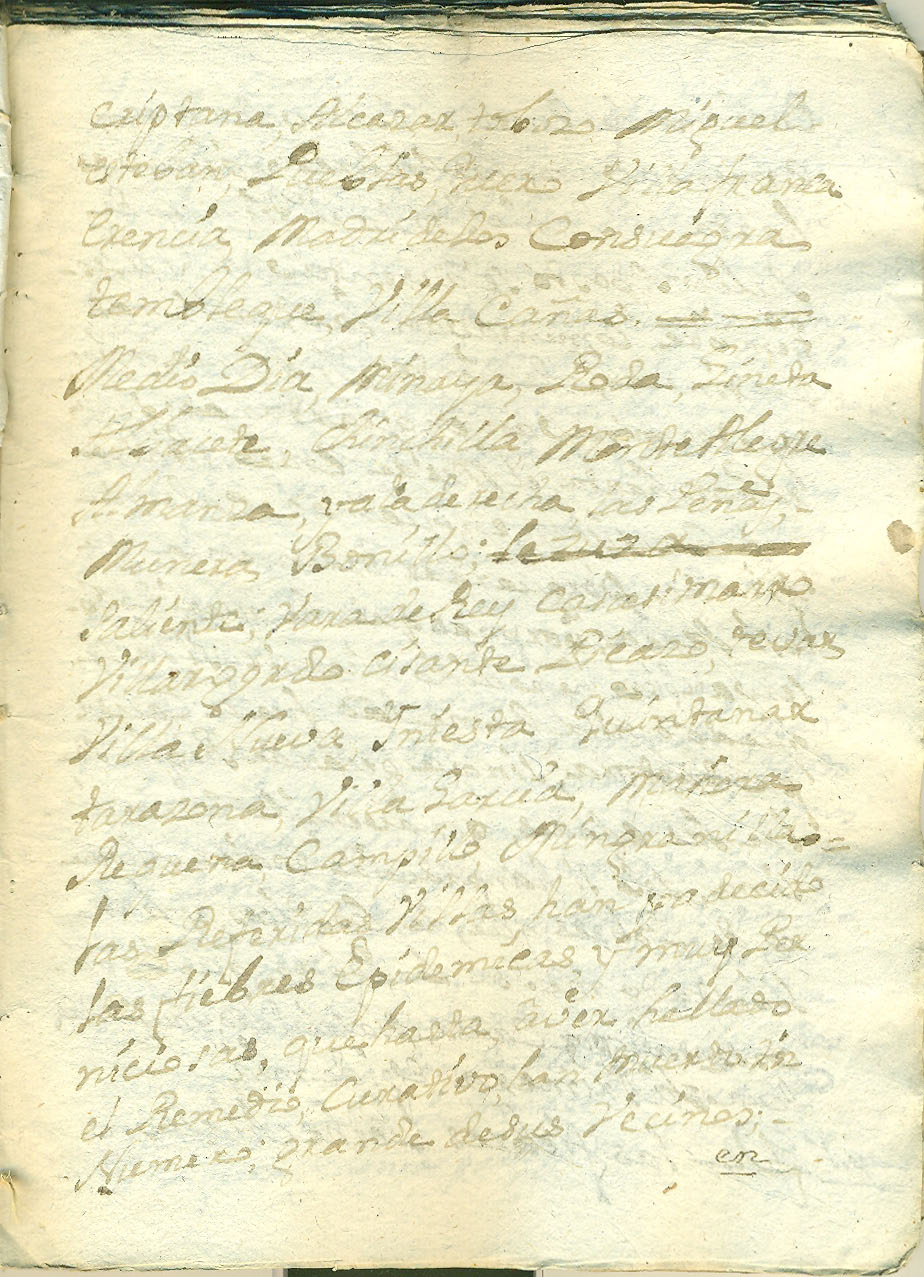 Criptana, Alcazar, toboso Miguel
esteban, Pueblas, quero Villa franca
Erencia, Madridedos Consuegra
tembleque, Villa Cañas.
Medio Dia, Minaya, Roda, Gineta
Albacete, Chinchilla, Monte Alegre
Almanza, ya la derecha las Peñas,
Munera, Bonillo; Lezuza
Saliente; Vara de Rey Casasimarro
Villargordo cisante Picazo, tevar
Villa Nueva, Yniesta Quintanar
tarazona, Villa Garcia,
Requena, Campillo, Mingranilla =
las Referidas Villas, han padecido
las fiebres Epidemicas, y muy Per
niciosas, que hasta, aver hallado
el Remedio, Curativo, han muerto In
Numero; grande desus Vecinos; -
en